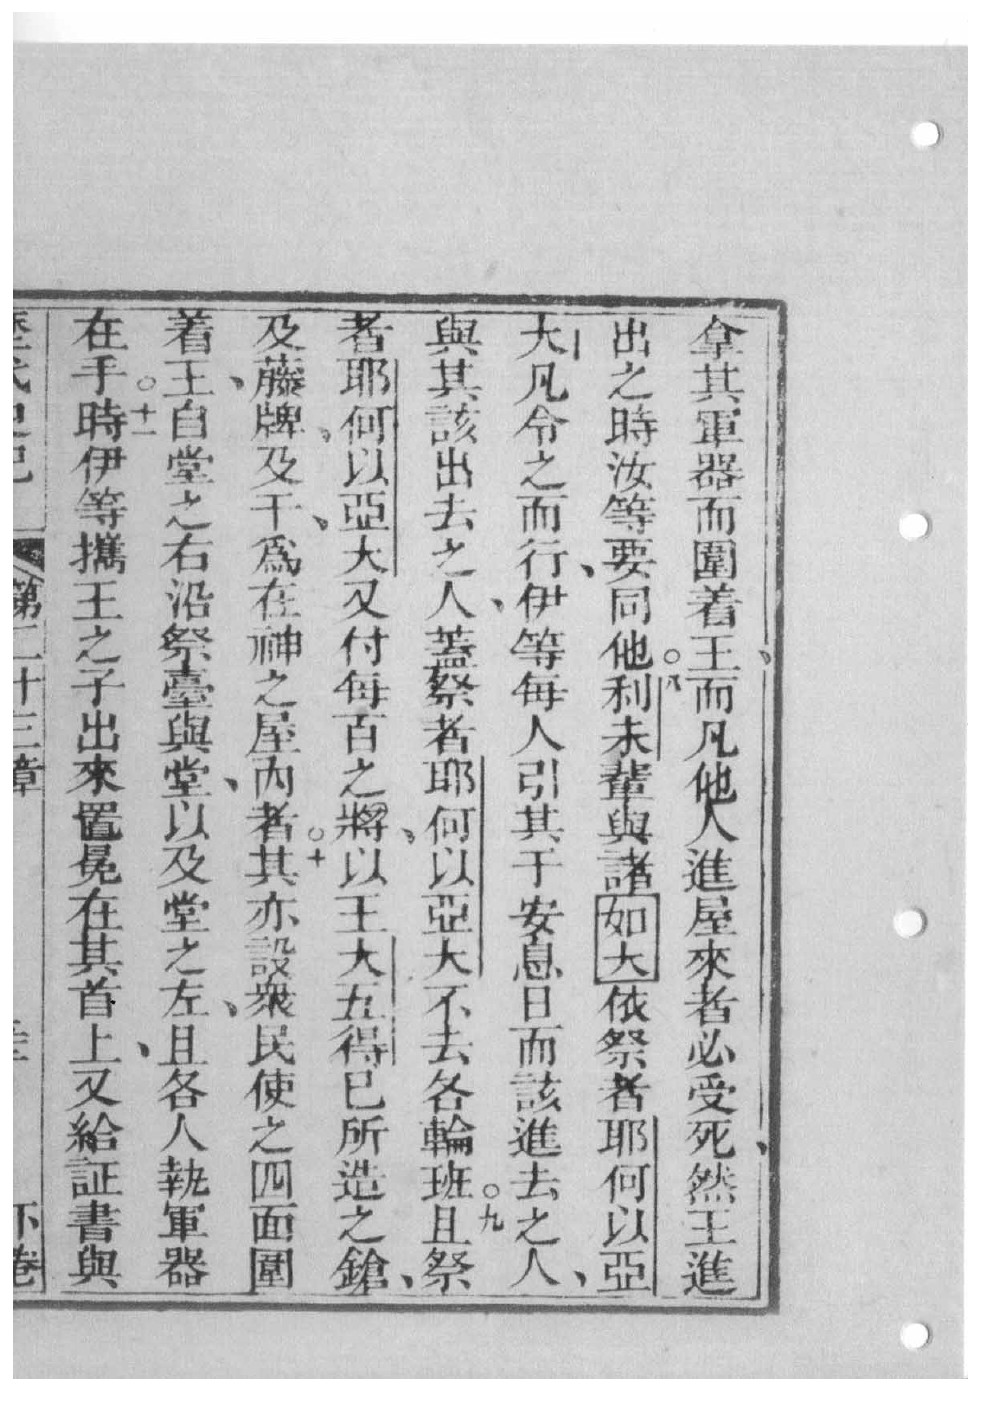 拿其軍器而圍着王、而凡他人進屋來者必受死、然王進
出之時汝等要同他。八利未輩與諸如大依祭者耶何以亞
大凡令之而行、伊等每人引其于安息日而該進去之人、
與其該出去之人、蓋祭者耶何以亞大不去各輪班。九且祭
者耶何以亞大又付每百之將、以王大五得已所造之鎗、
及藤牌、及干、爲在神之屋內者。十其亦設衆民使之四面圍
着王、自堂之右沿祭臺與堂、以及堂之左、且各人執軍器
在手。十一時伊等攜王之子出來置冕在其首上、又給証書與
歷代史記 第二十三章 下卷